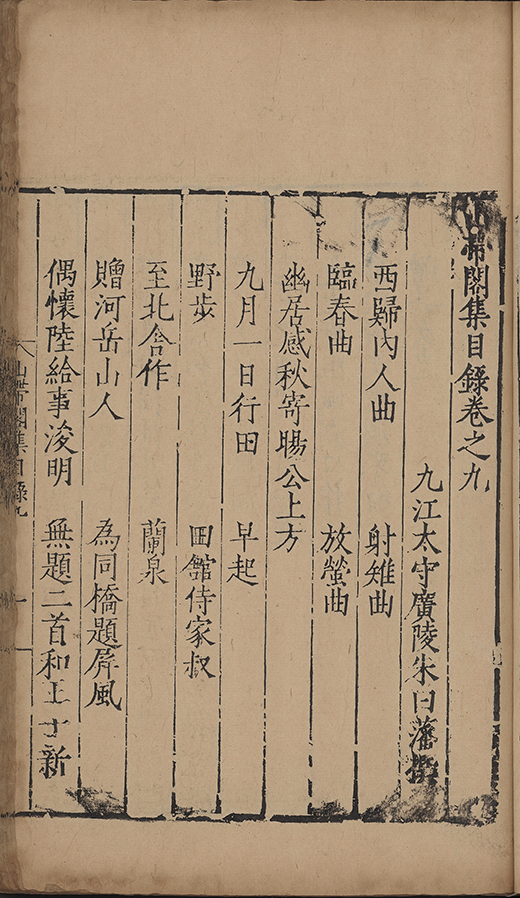 山帶閣集目錄卷之九
九江太守廣陵朱曰藩撰
西歸內人曲 射雉曲
臨春曲 放螢曲
幽居感秋寄暘公上方
九月一日行田 早起
野步 田館侍家叔
至北舍作 蘭泉
贈河岳山人 為同橋題屏風
偶懷陸給事浚明 無題二首和王士新
山帶閣集目錄九 一